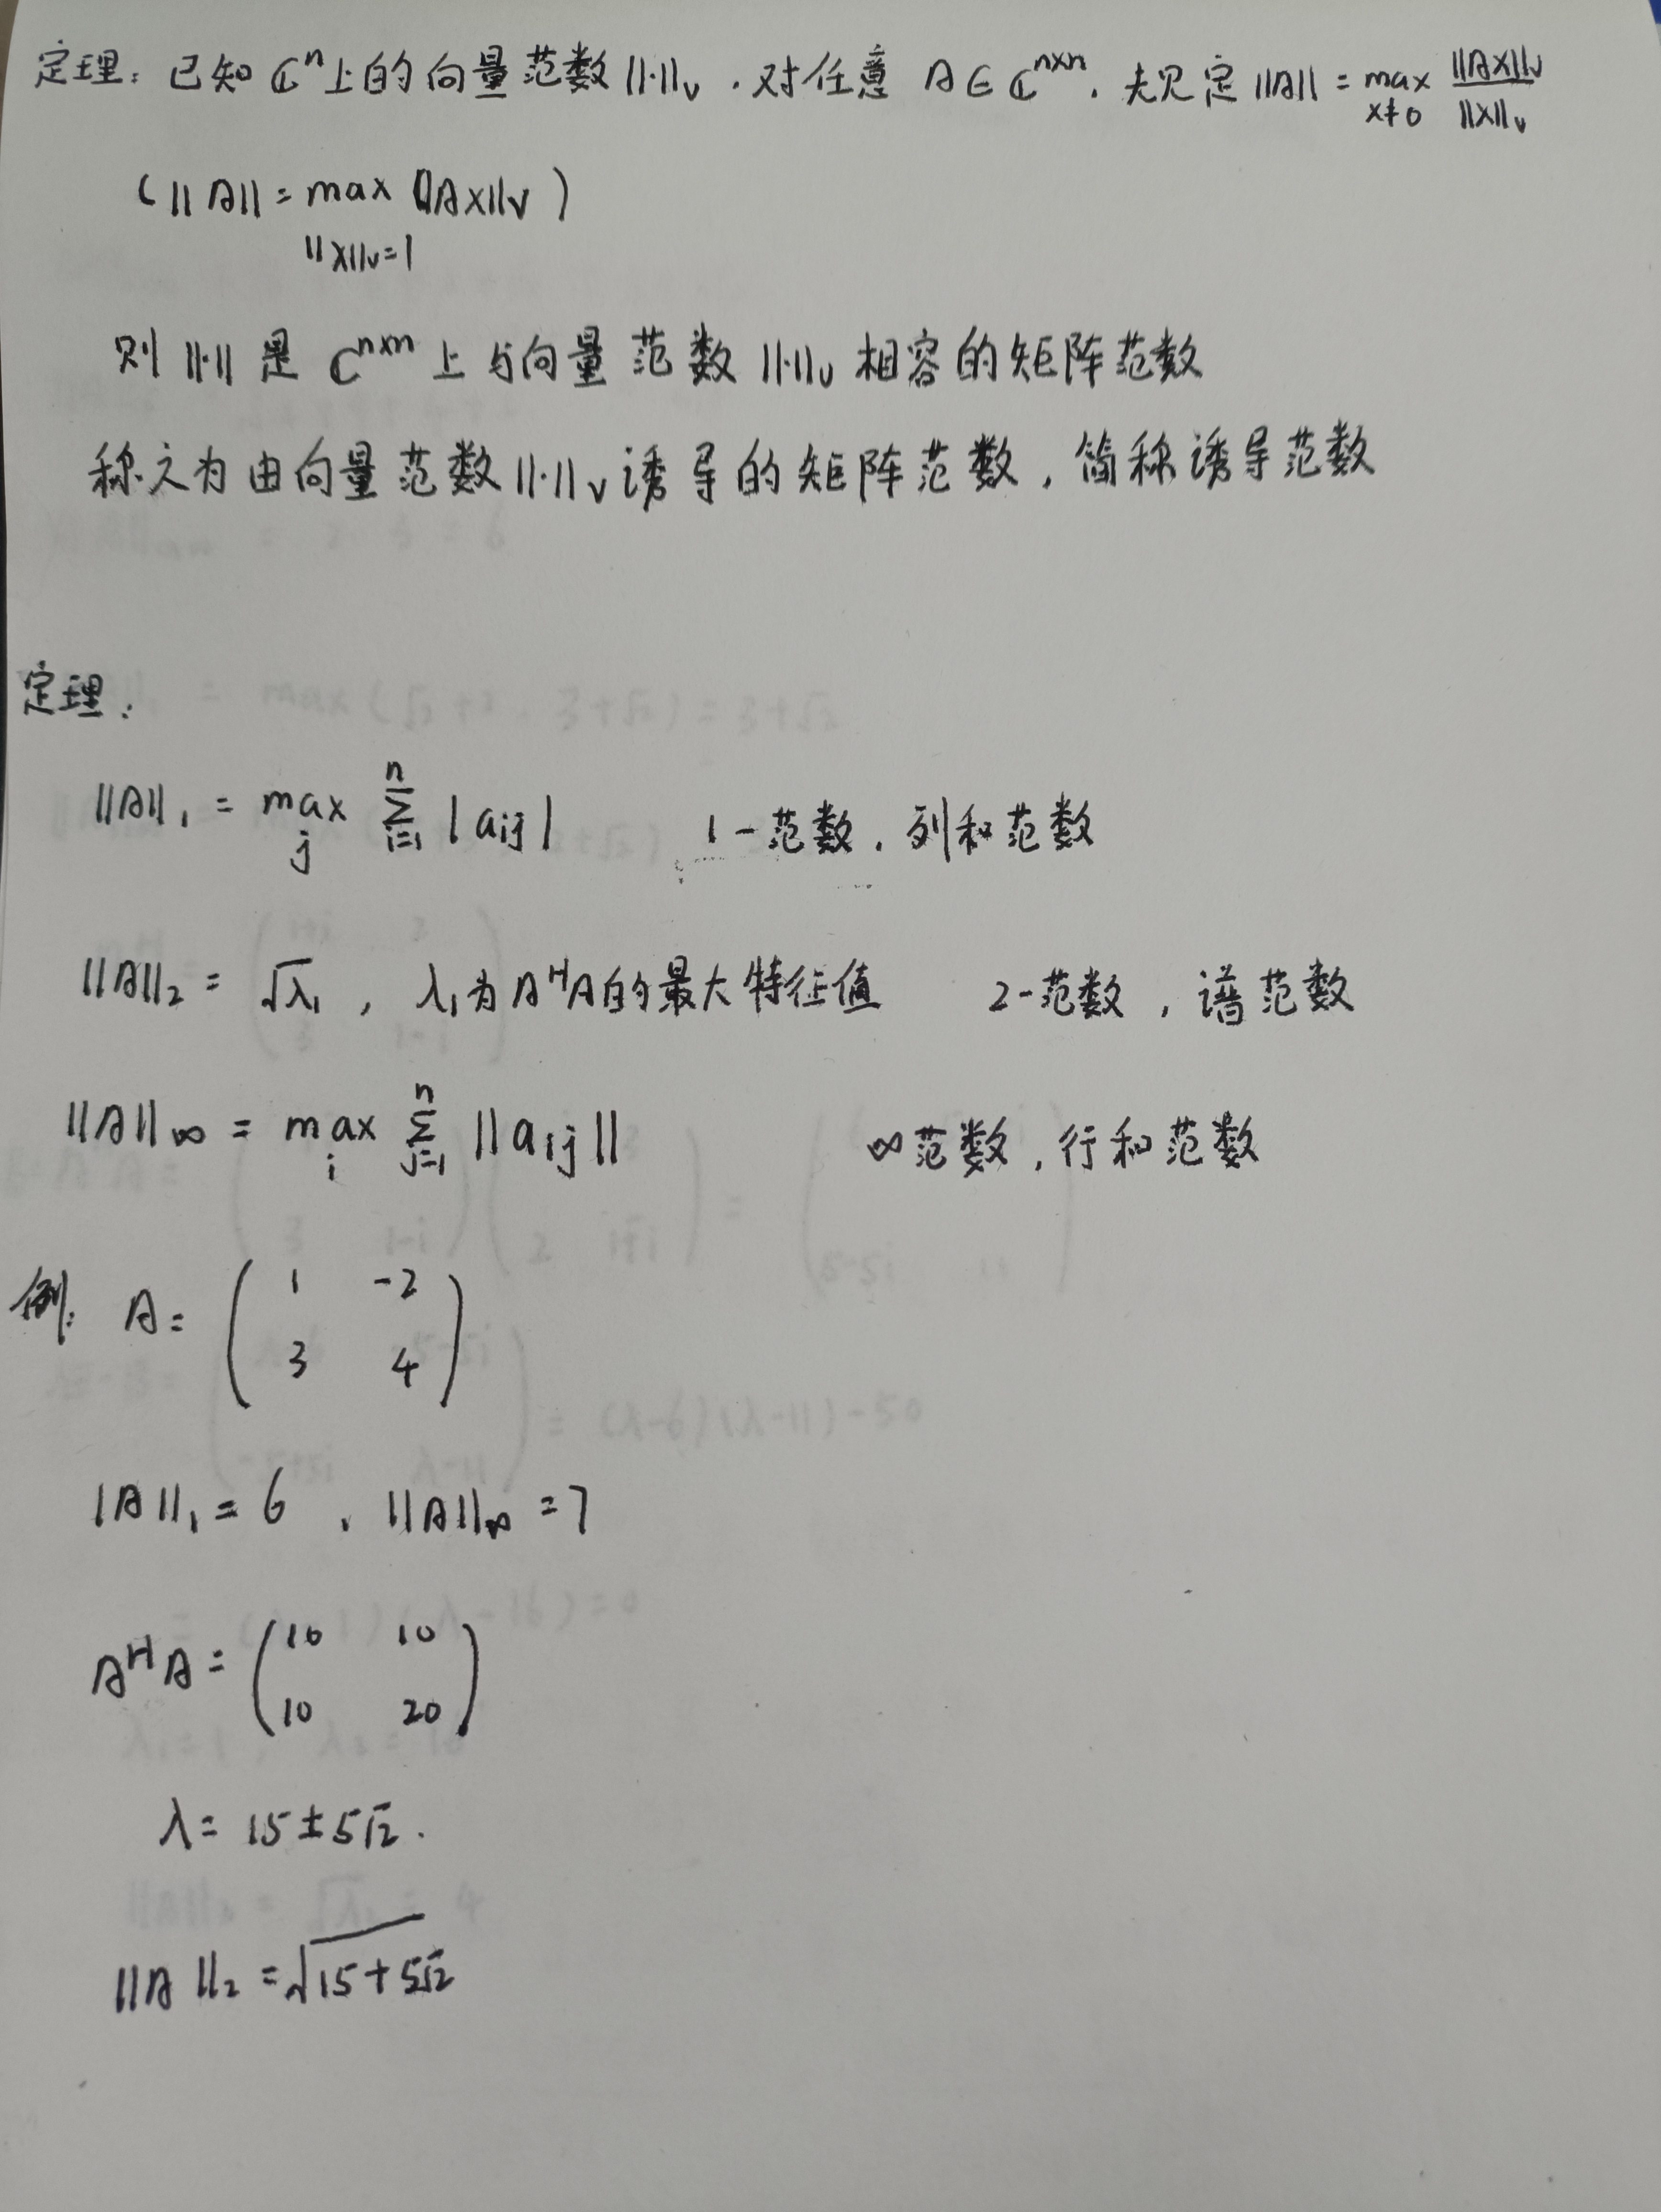 定理：已知 ℂⁿ上的向量范数||·||ᵥ，对任意 A∈ℂⁿˣⁿ，规定||A|| = max_{x≠0} ||Ax||ᵥ / ||x||ᵥ
(||A|| = max_{||x||ᵥ=1} ||Ax||ᵥ)
则||·||是 ℂⁿˣⁿ上与向量范数||·||ᵥ相容的矩阵范数
称之为由向量范数||·||ᵥ诱导的矩阵范数，简称诱导范数
定理：
||A||₁ = max_j Σ_{i=1}^n |aij| 1-范数，列和范数
||A||₂ = √λ₁，λ₁为AᴴA的最大特征值 2-范数，谱范数
||A||∞ = max_i Σ_{j=1}^n ||aij|| ∞范数，行和范数
例：A = ( 1 -2
3 4 )
|A||₁ = 6，||A||∞ = 7
AᴴA = ( 10 10
10 20 )
λ = 15±5√2.
||A||₂ = √(15+5√2)